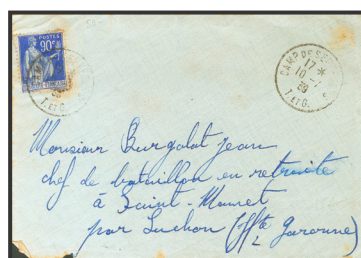 POSTES
90c
CAMP DE SE
17 *
10-7
39
T. ET G.
T. ET G.
Monsieur Burgalat Jean
chef de bataillon en retraite
à Saint-Mamet
par Luchon (Hte Garonne)